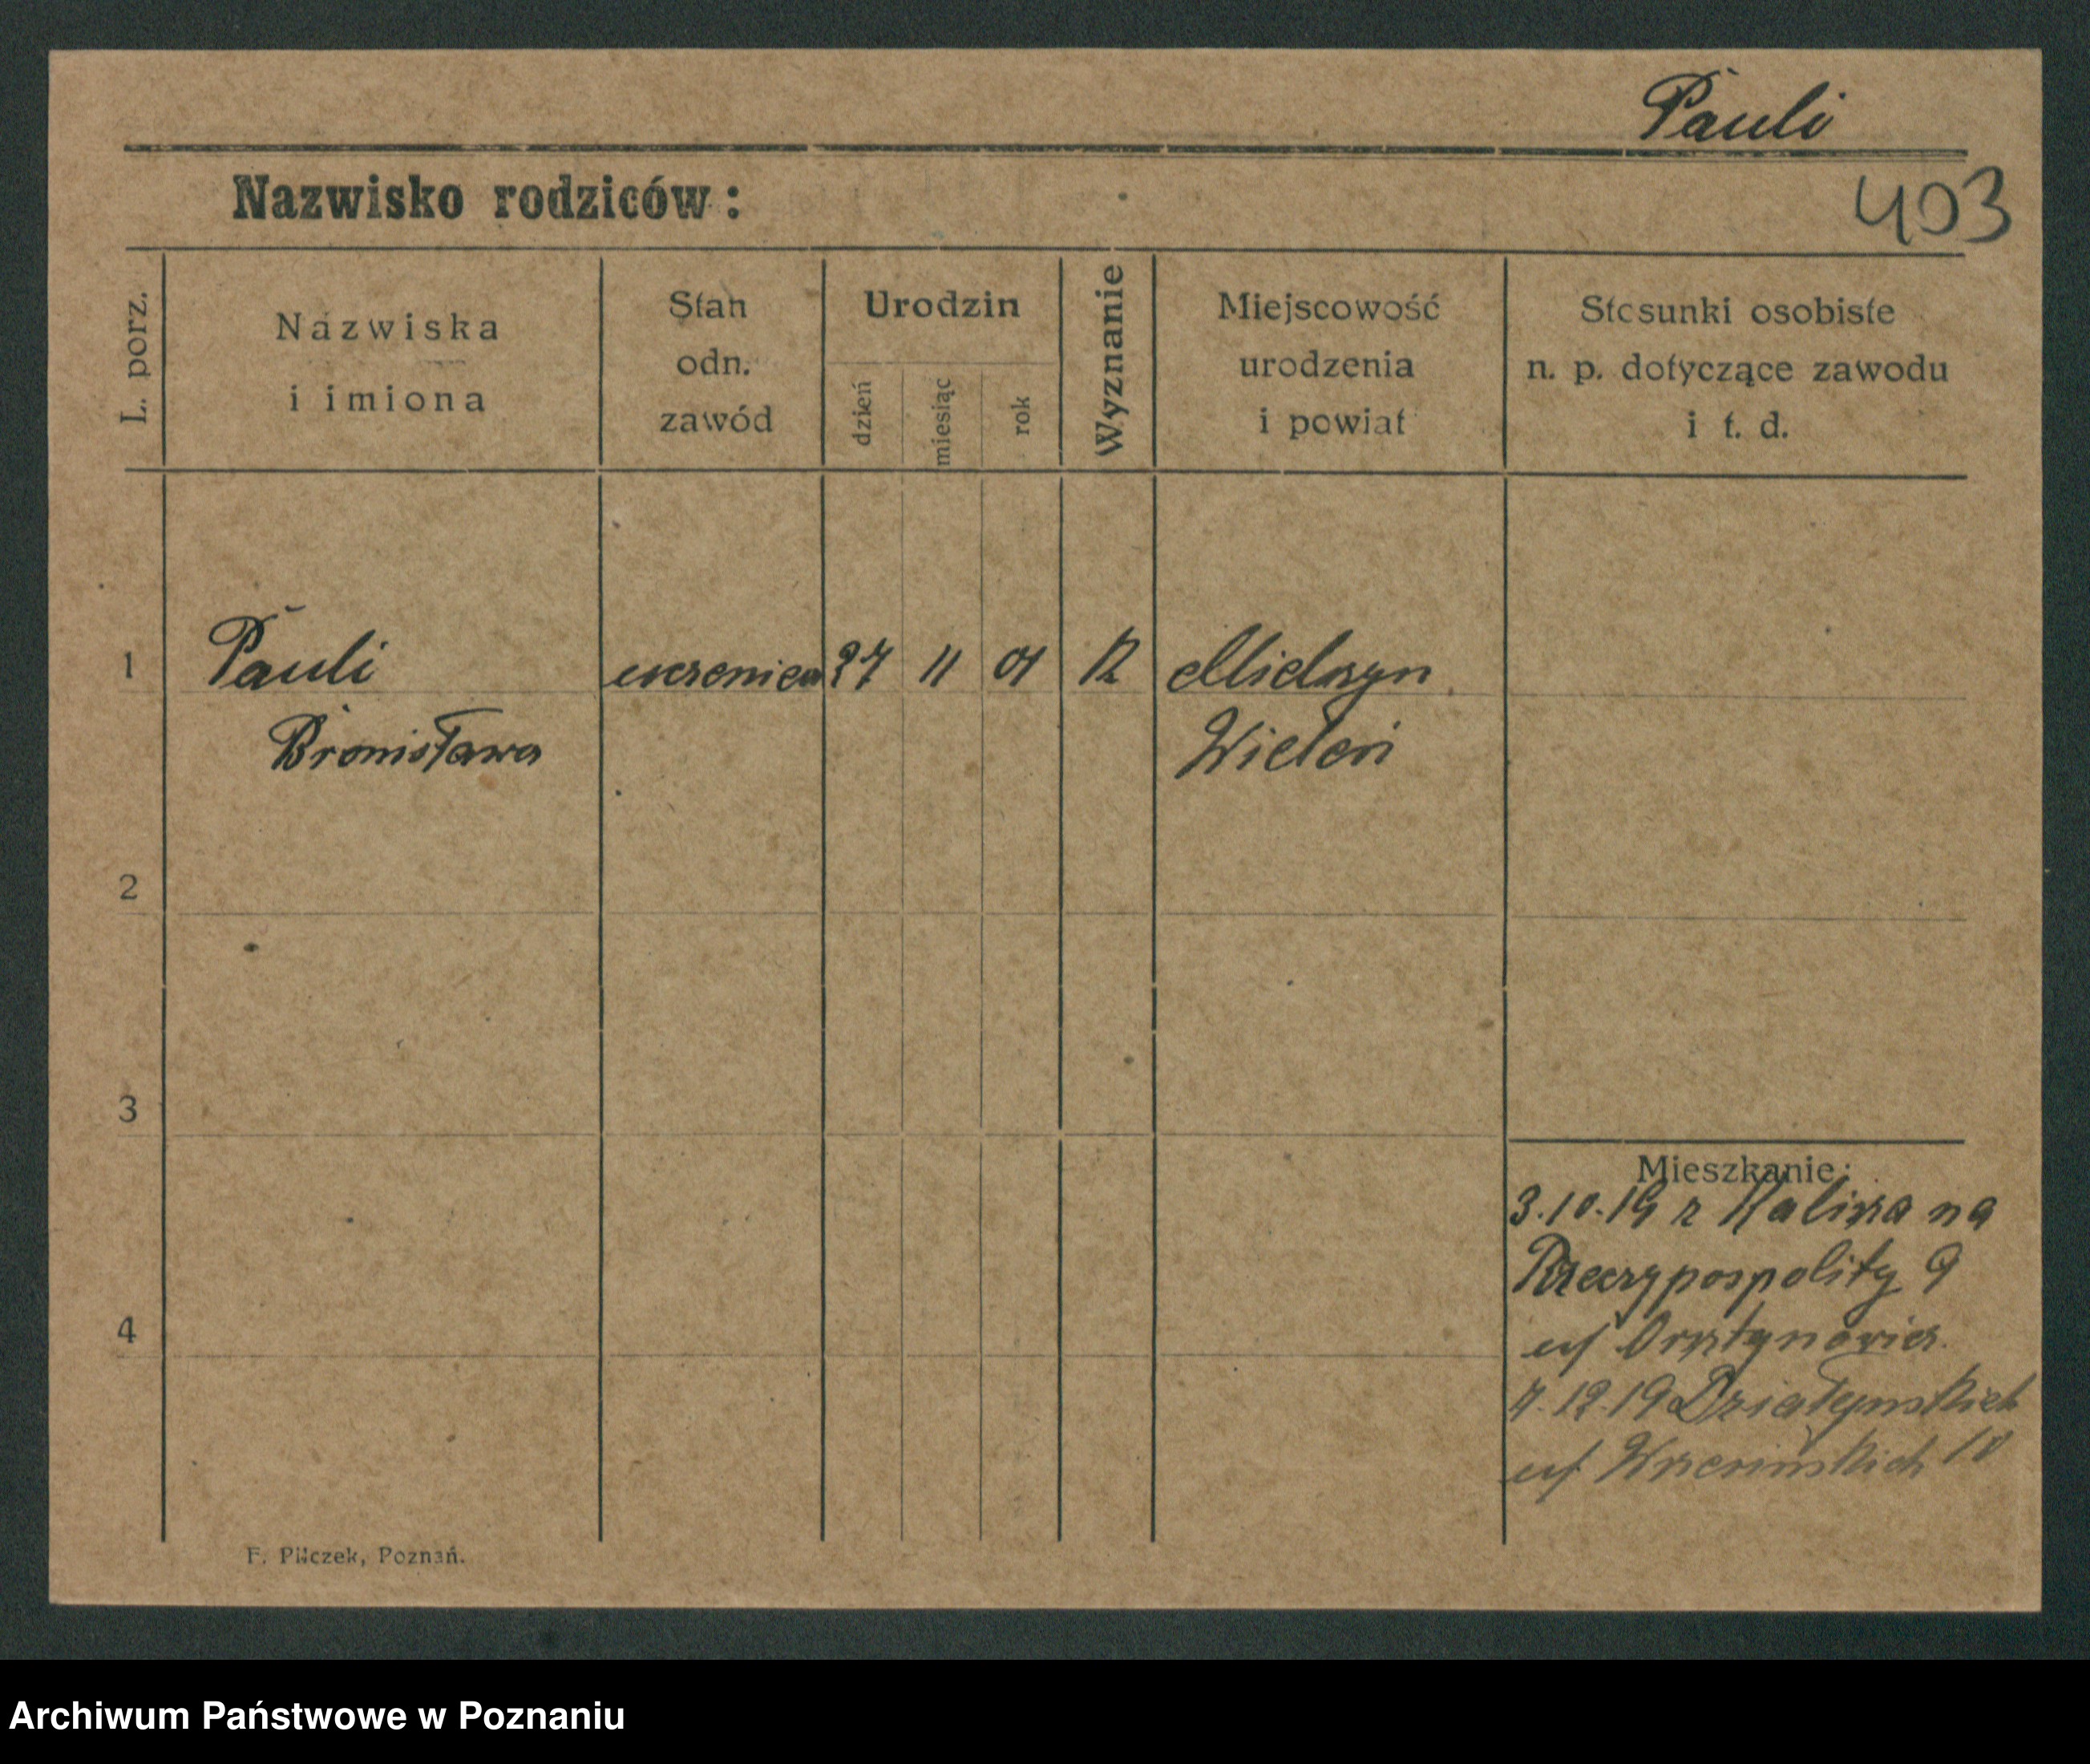 Pauli
Nazwisko rodziców:
403
L. porz.
Nazwiska
i imiona
Stan
odn.
zawód
Urodzin
dzień
miesiąc
rok
Wyznanie
Miejscowość
urodzenia
i powiat
Stosunki osobiste
n. p. dotyczące zawodu
i t. d.
1 Pauli uczenica 27 11 01 K Mielszyn
Bronisława Wieleń
2
3
4
Mieszkanie:
3.10.19 z Kalisza na
Rzeczypospolity 9
u/
4.12.19 Działyńskich 10
u/
F. Pilczek, Poznań.
Archiwum Państwowe w Poznaniu